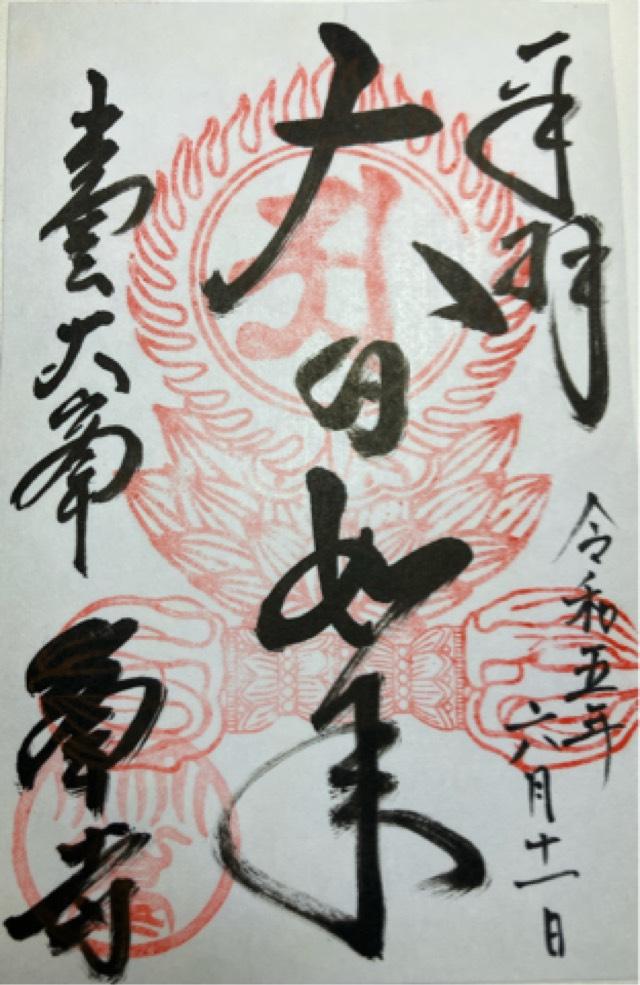 奉拝
令和五年
六月十一日
大日如来
出雲大峯
峯寺